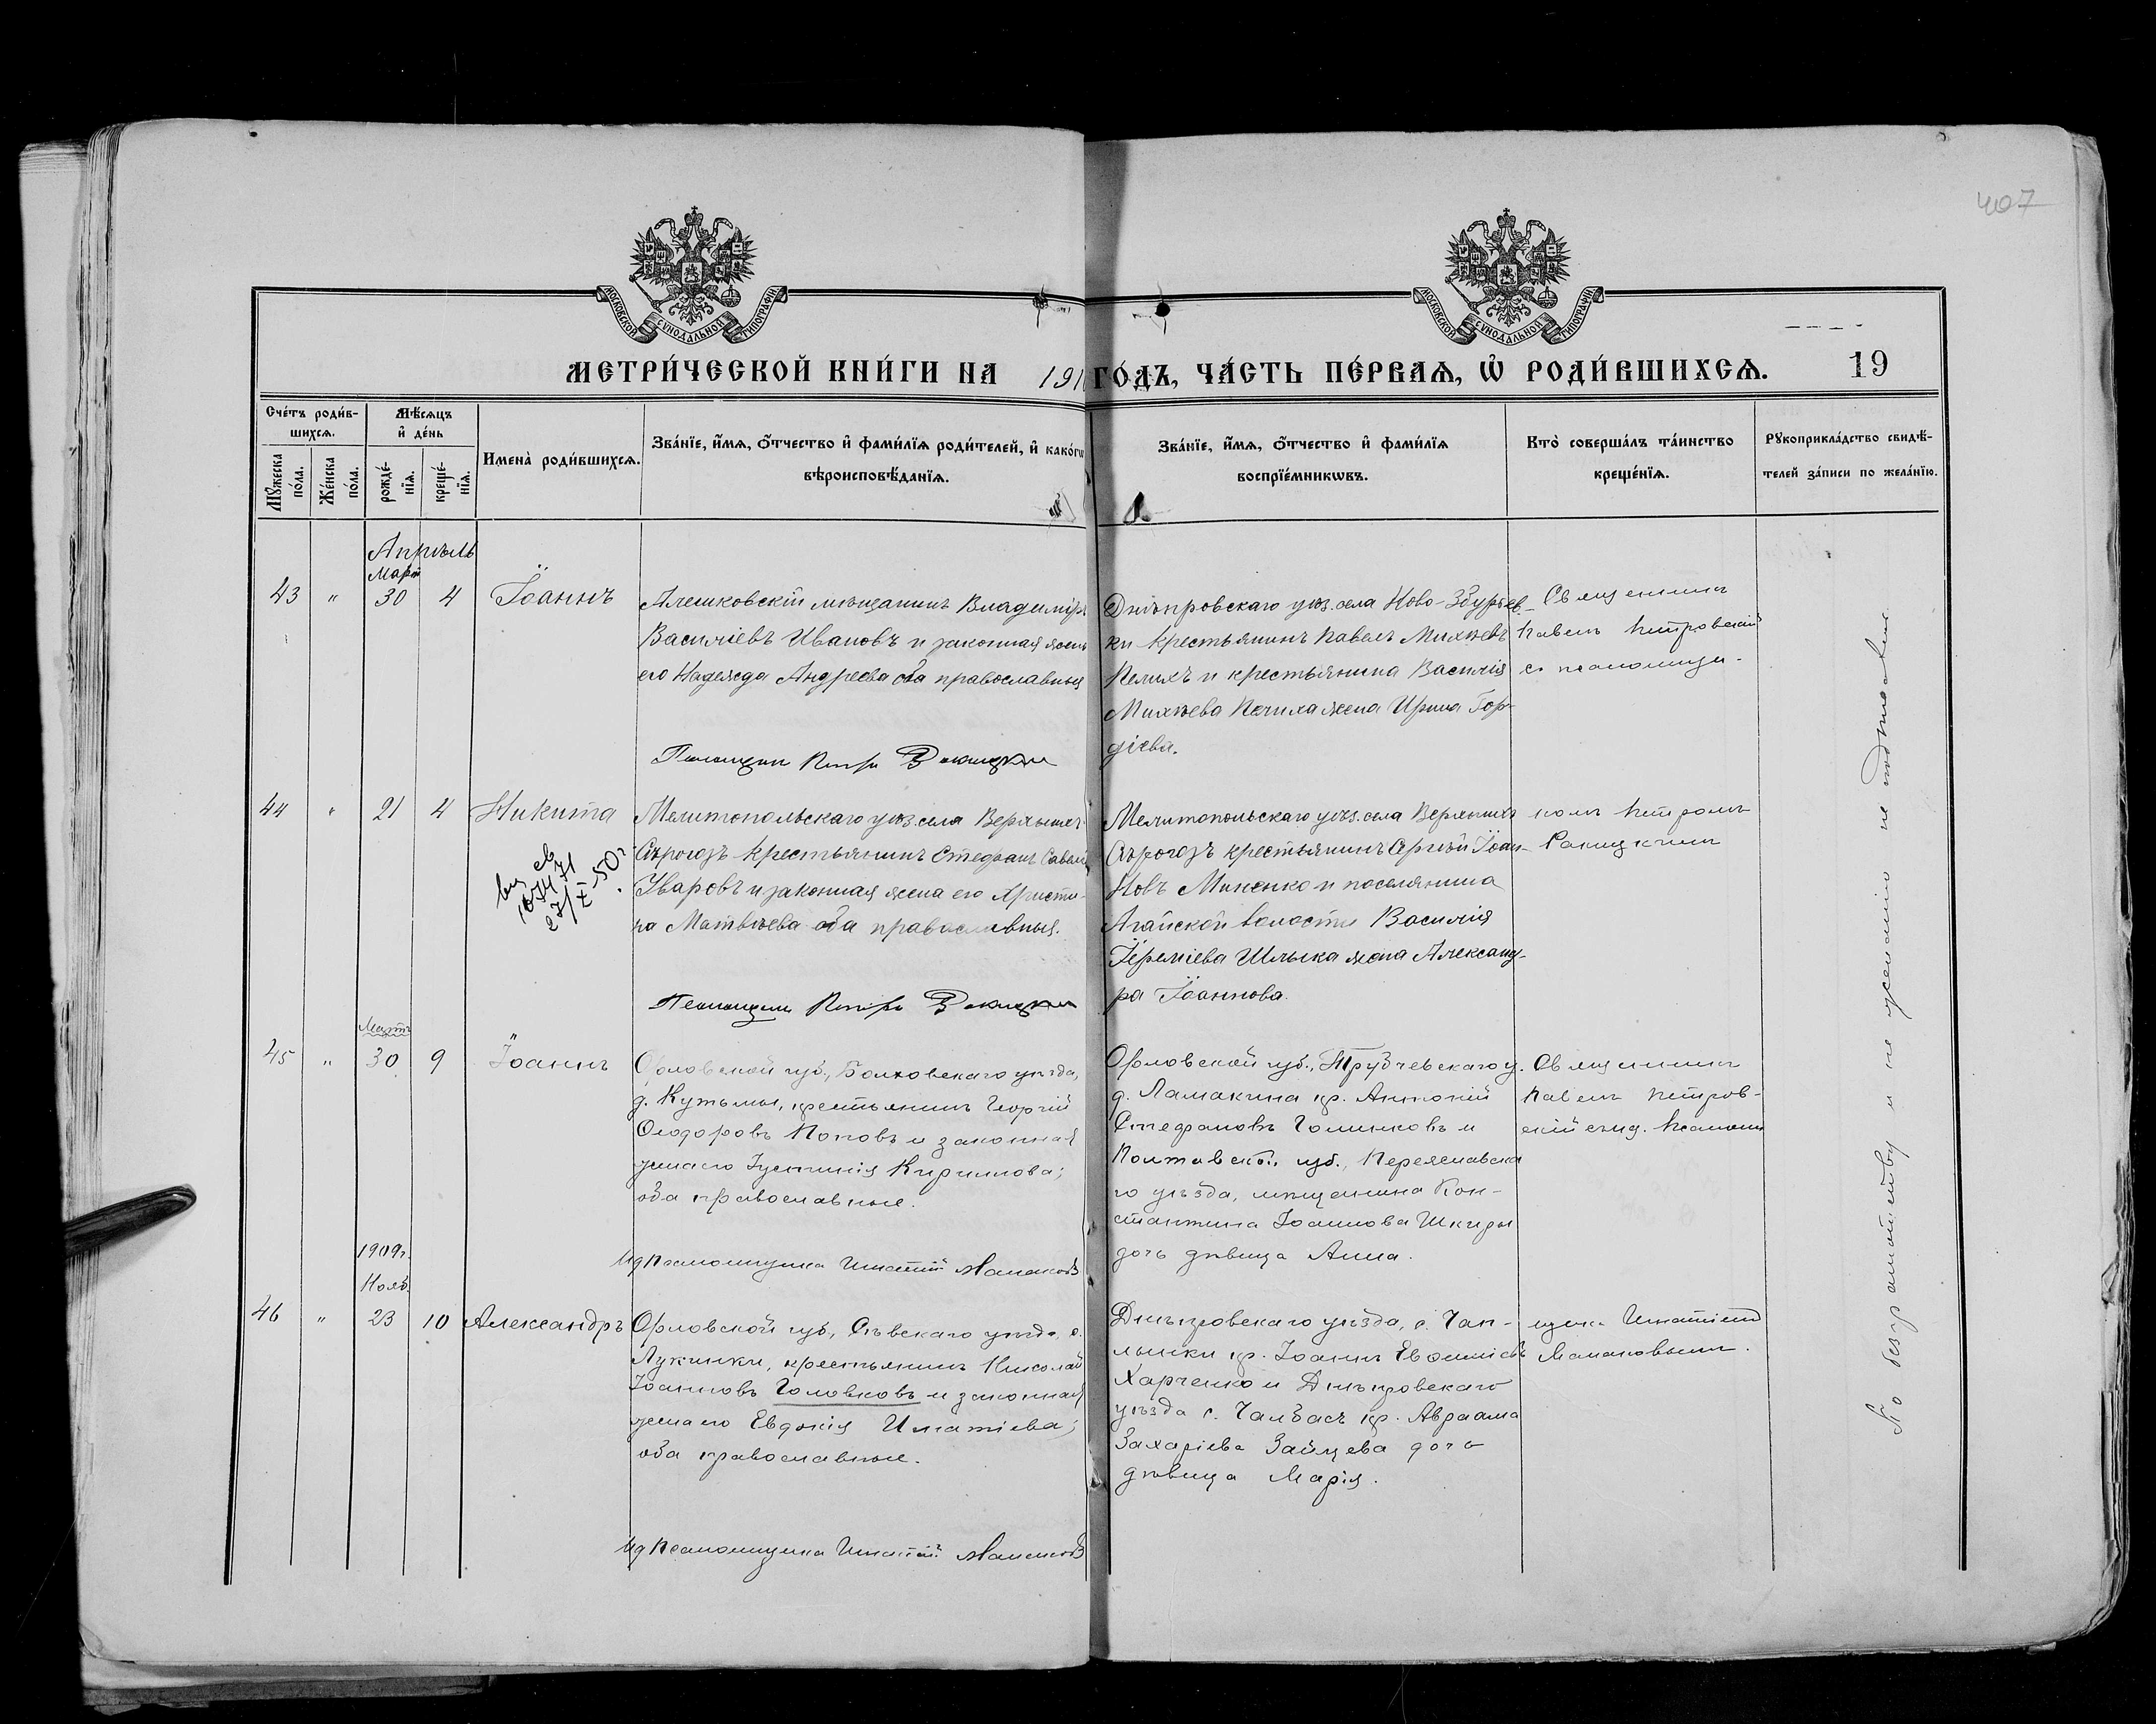 407
МОСКОВСКОЙ СѴНОДАЛЬНОЙ ТИПОГРАФІИ
МОСКОВСКОЙ СѴНОДАЛЬНОЙ ТИПОГРАФІИ
МЕТРИ́ЧЕСКОЙ КНИ́ГИ НА 191 ГО́ДЪ, ЧА́СТЬ ПЕ́РВАѦ, Ѡ҆ РОДИ́ВШИХСѦ. 19
Сче́тъ роди́в-
шихсѧ.
Мꙋ́жеска по́ла.
Же́нска по́ла.
Мѣ́сѧцъ и҆ де́нь
рожде́-нїѧ.
креще́-нїѧ.
Имена̀ роди́вшихсѧ.
Зва́нїе, и҆́мѧ, ѻ҆́тчество и҆ фами́лїѧ роди́телей, и҆ како́гѡ
вѣроисповѣ́данїѧ.
Зва́нїе, и҆́мѧ, ѻ҆́тчество и҆ фами́лїѧ
воспрїе́мникѡвъ.
Кто̀ соверша́лъ та́инство
креще́нїѧ.
Рꙋкоприкла́дство свидѣ́-
телей за́писи по жела́нїю.
Апрѣль
Март
43 " 30 4 Іоаннъ
Алешковскій мѣщанинъ Владиміръ
Василіевъ Ивановъ и законная жена
его Надежда Андреева оба православные
Псаломщик Петръ
Днѣпровскаго уѣз. села Ново-Збурьев-
ки крестьянинъ Павелъ Михѣевъ
Пелихъ и крестьянина Василія
Михѣева Пелиха жена Ирина Гор-
діева.
Священникъ
Павелъ Петровскій
съ псаломщи-
44 " 21 4 Никита
105471
27/X-50г.
Мелитопольскаго уѣз. села Верхнихъ
Сѣрогозъ крестьянинъ Стефанъ
Уваровъ и законная жена его Христи-
на Матвѣева оба православные.
Псаломщик Петръ
Мелитопольскаго уѣз. села Верхнихъ
Сѣрогозъ крестьянинъ Сергій Іоан-
новъ Миненко и поселянина
Агайской волости Василія
Іереміева Шлыка жена Александ-
ра Іоаннова.
комъ Петромъ
Ракицкимъ
Мартъ
45 " 30 9 Іоаннъ
Орловской губ., Болховскаго уѣзда,
д. Кутьмы, крестьянинъ Георгій
Ѳеодоровъ Поповъ и законная
жена его Іустинія Кириллова;
оба православные.
Ид Псаломщика Игнатій Манаковъ
Орловской губ., Трубчевскаго у.
д. Ламакина кр. Антоній
Стефановъ Голиковъ и
Полтавской губ., Переяславска
го уѣзда, мѣщанина Кон-
стантина Іоаннова Шкиры
дочь дѣвица Анна.
Священникъ
Павелъ Петров-
скій съ ид. Псаломъ
1909г.
Нояб.
46 " 23 10 Александръ
Орловской губ., Сѣвскаго уѣзда, с.
Лукинки, крестьянинъ Николай
Іоанновъ Головковъ и законная
жена его Евдокія Игнатіева;
оба православные.
Ид Псаломщика Игнатій Манаковъ
Днѣпровскаго уѣзда, с. Чап-
лынки кр. Іоаннъ Евѳиміевъ
Харченко и Днѣпровскаго
уѣзда с. Чалбасъ кр. Авраама
Захаріева Зайцева дочь
дѣвица Марія.
щика Игнатіемъ
Манаковымъ.
По безграмотству и не желанію не подписались